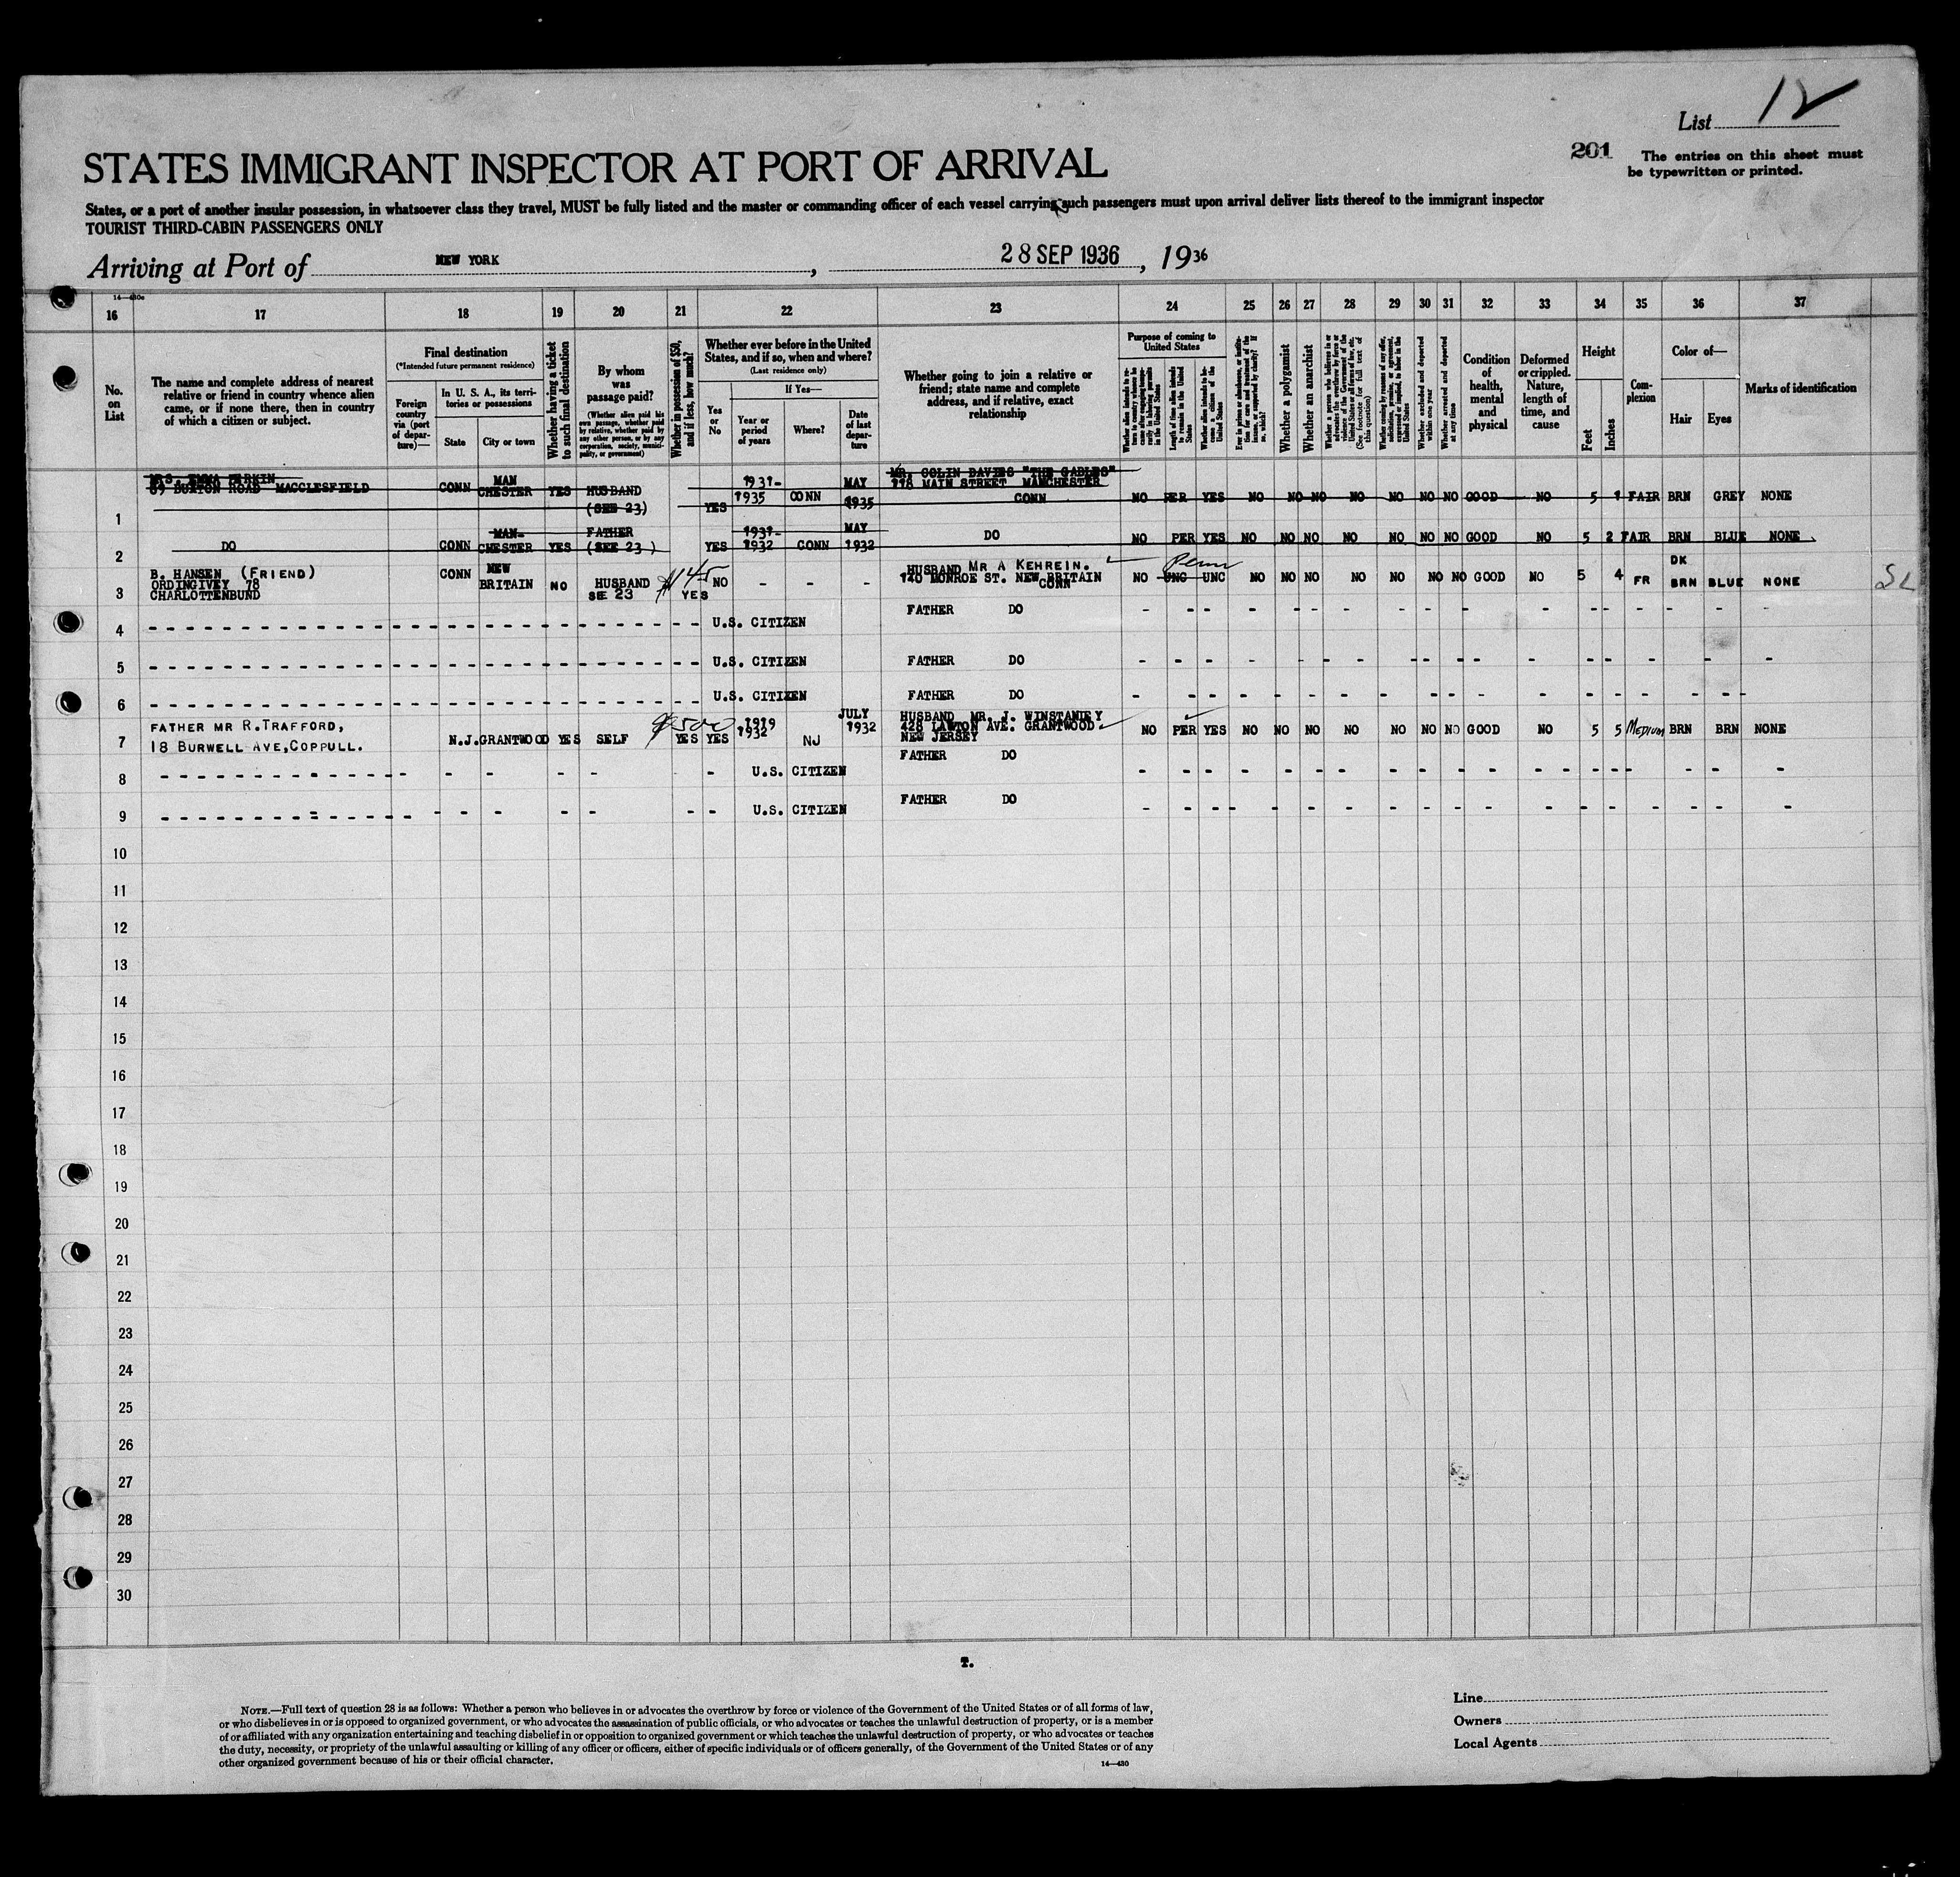 List 12
201
The entries on this sheet must
be typewritten or printed.
STATES IMMIGRANT INSPECTOR AT PORT OF ARRIVAL
States, or a port of another insular possession, in whatsoever class they travel, MUST be fully listed and the master or commanding officer of each vessel carrying such passengers must upon arrival deliver lists thereof to the immigrant inspector
TOURIST THIRD-CABIN PASSENGERS ONLY
Arriving at Port of NEW YORK, 28 SEP 1936, 1936
16 17 18 19 20 21 22 23 24 25 26 27 28 29 30 31 32 33 34 35 36 37
No. on List
The name and complete address of nearest relative or friend in country whence alien came, or if none there, then in country of which a citizen or subject.
Final destination
(*Intended future permanent residence)
Foreign country via (port of departure)—
In U. S. A., its territories or possessions
State
City or town
Whether having a ticket to such final destination
By whom was passage paid?
(Whether alien paid his own passage, whether paid by relative, whether paid by any other person, or by any corporation, society, municipality, or government)
Whether in possession of $50, and if less, how much?
Whether ever before in the United States, and if so, when and where?
(Last residence only)
Yes or No
If Yes—
Year or period of years
Where?
Date of last departure
Whether going to join a relative or friend; state name and complete address, and if relative, exact relationship
Purpose of coming to United States
Length of time alien intends to remain in the United States
Whether alien intends to become a citizen of the United States
Whether a polygamist
Whether an anarchist
(See footnote for full text of this question)
Whether excluded and deported within one year
Whether arrested and deported at any time
Condition of health, mental and physical
Deformed or crippled. Nature, length of time, and cause
Height
Feet
Inches
Complexion
Color of—
Hair
Eyes
Marks of identification
1 MRS. EMMA PARKIN 89 BUXTON ROAD MACCLESFIELD CONN MAN CHESTER YES HUSBAND (SEE 23) YES 1931- 1935 CONN MAY 1935 MR. COLIN DAVIES "THE GABLES" 118 MAIN STREET MANCHESTER CONN NO PER YES NO NO NO NO NO NO NO GOOD NO 5 1 FAIR BRN GREY NONE
2 DO CONN MAN- CHESTER YES FATHER (SEE 23) YES 1931- 1932 CONN MAY 1932 DO NO PER YES NO NO NO NO NO NO NO GOOD NO 5 2 FAIR BRN BLUE NONE
3 B. HANSEN (FRIEND) ORDINGIVEY 78 CHARLOTTENBUND CONN NEW BRITAIN NO HUSBAND SEE 23 $145 YES NO - - - HUSBAND MR A KEHREIN. 140 MONROE ST. NEW BRITAIN CONN NO UNC Perm UNC NO NO NO NO NO NO NO GOOD NO 5 4 FR DK BRN BLUE NONE SL
4 U.S. CITIZEN FATHER DO
5 U.S. CITIZEN FATHER DO
6 U.S. CITIZEN FATHER DO
7 FATHER MR R.TRAFFORD, 18 BURWELL AVE,COPPULL. N.J. GRANTWOOD YES SELF $500 YES YES 1919 1932 NJ JULY 1932 HUSBAND MR. J. WINSTANLEY 428 LAWTON AVE. GRANTWOOD NEW JERSEY NO PER YES NO NO NO NO NO NO NO GOOD NO 5 5 MEDIUM BRN BRN NONE
8 U.S. CITIZEN FATHER DO
9 U.S. CITIZEN FATHER DO
10
11
12
13
14
15
16
17
18
19
20
21
22
23
24
25
26
27
28
29
30
T.
NOTE.—Full text of question 28 is as follows: Whether a person who believes in or advocates the overthrow by force or violence of the Government of the United States or of all forms of law,
or who disbelieves in or is opposed to organized government, or who advocates the assassination of public officials, or who advocates or teaches the unlawful destruction of property, or is a member
of or affiliated with any organization entertaining and teaching disbelief in or opposition to organized government or which teaches the unlawful destruction of property, or who advocates or teaches
the duty, necessity, or propriety of the unlawful assaulting or killing of any officer or officers, either of specific individuals or of officers generally, of the Government of the United States or of any
other organized government because of his or their official character.
14—430
Line
Owners
Local Agents